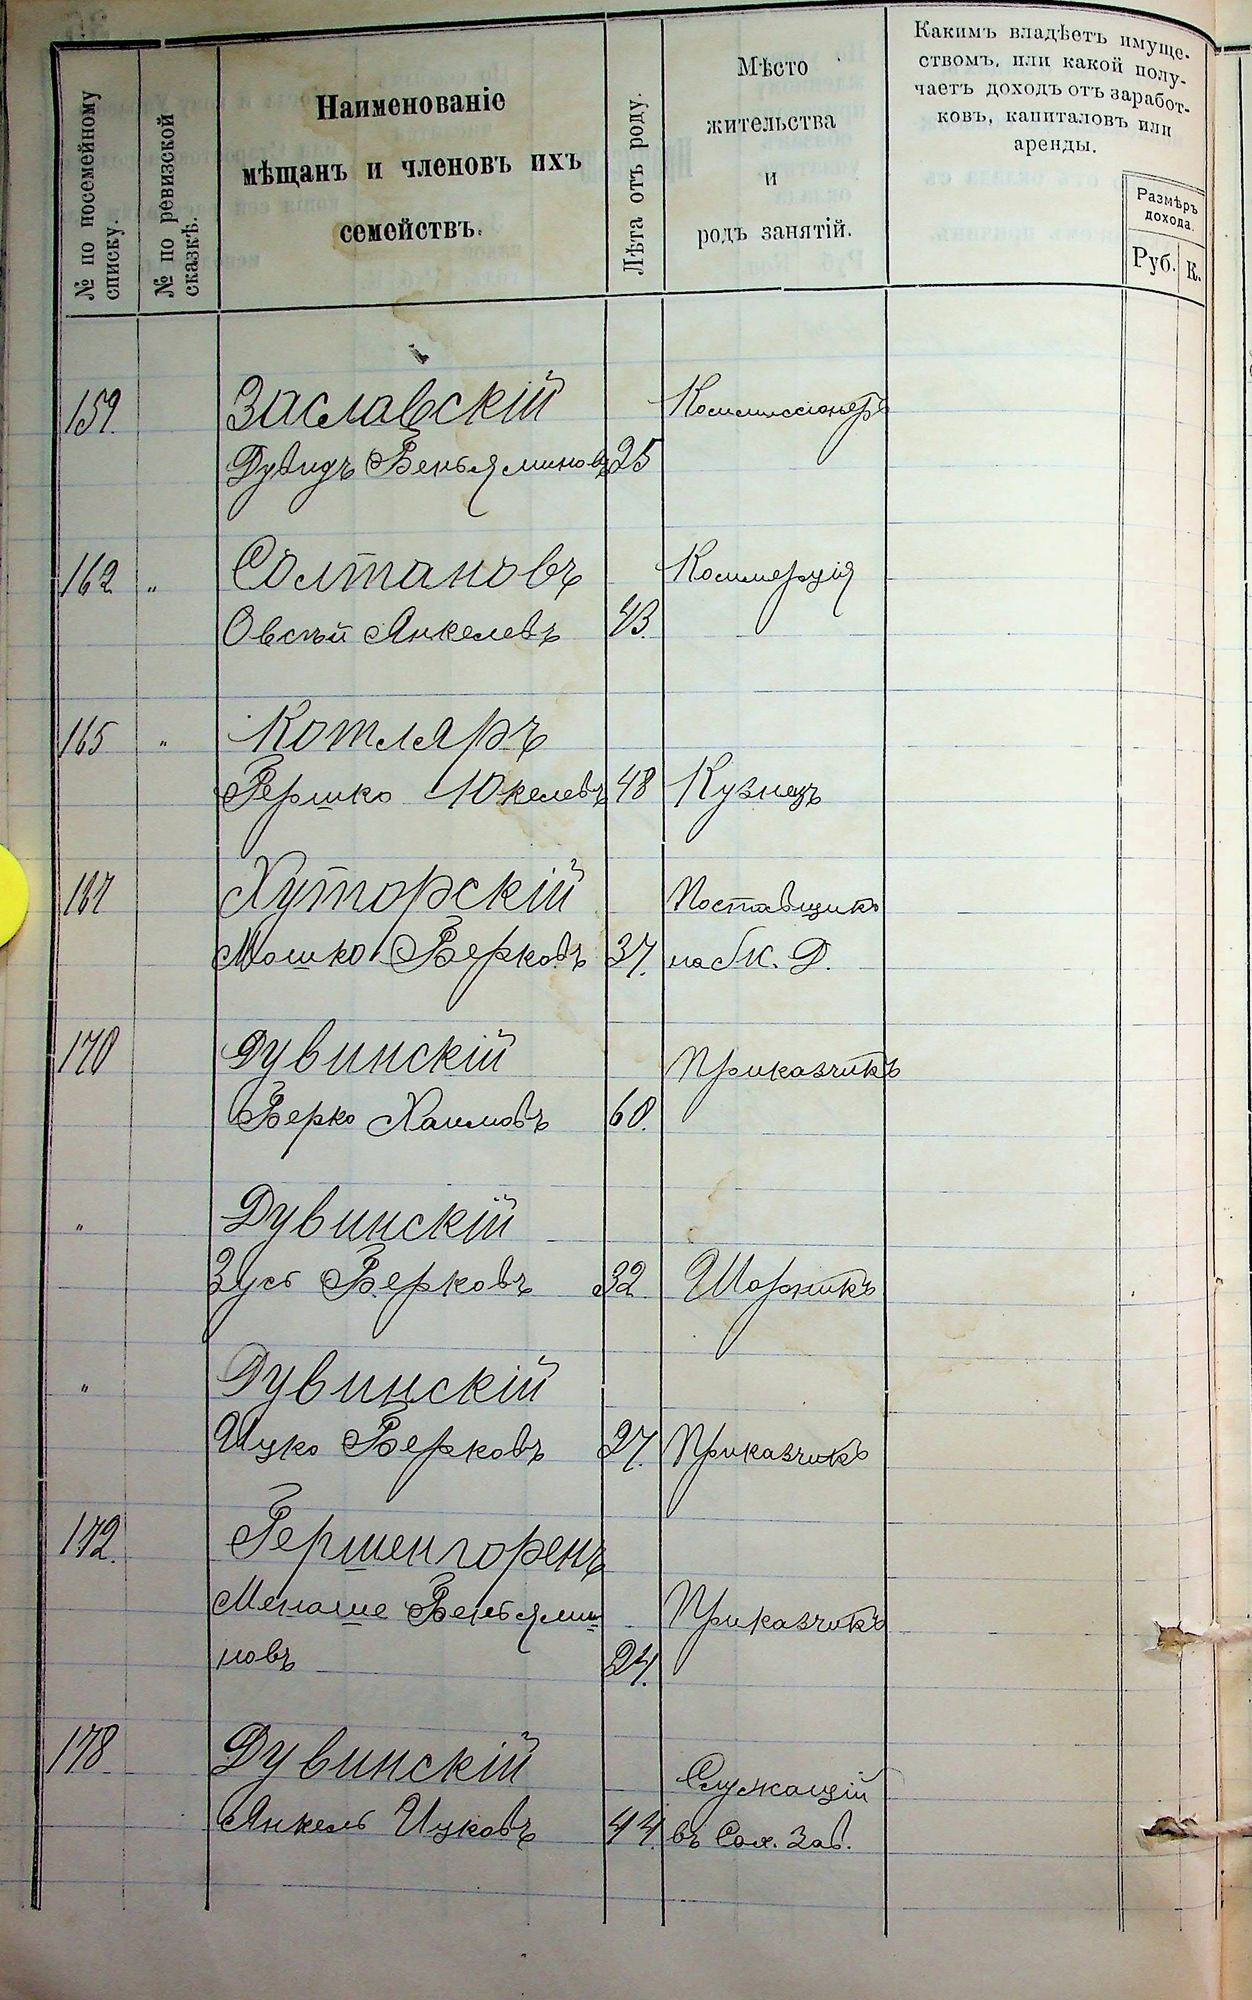 № по посемейному списку.
№ по ревизской сказкѣ.
Наименованіе
мѣщанъ и членовъ ихъ
семействъ.
Лѣта отъ роду.
Мѣсто
жительства
и
родъ занятій.
Какимъ владѣетъ имуще-
ствомъ, или какой полу-
чаетъ доходъ отъ заработ-
ковъ, капиталовъ или
аренды.
Размѣръ
дохода.
Руб. К.
159. Заславскій Коммиссіонеръ
Дувидъ Веньяминовъ 25
162 " Солтановъ Коммерція
Овсѣй Янкелевъ 43.
165 " Котляръ
Гершко Юкелевъ 48 Кузнецъ
167 Хуторскій Поставщикъ
Мошко Берковъ 37. на
170 Дувинскій Приказчикъ
Берко Хаимовъ 60.
" Дувинскій
Зусь Берковъ 32 Шорникъ
" Дувинскій
Ицко Берковъ 27. Приказчикъ
172. Гершенгоренъ
Менаше Веньями= Приказчикъ
новъ 24.
178 Дувинскій Служащій
Янкель Ицковъ 44. въ Сах. Зав.